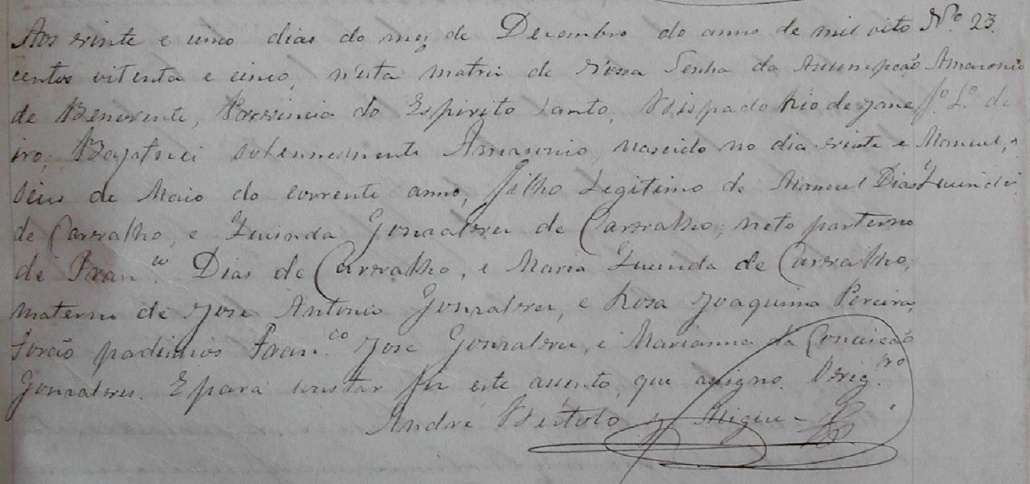 Aos vinte e cinco dias do mez de Decembro do anno de mil oito
centos oitenta e cinco, nesta matriz de Nossa Senha da Assumpção
de Benevente, Provincia do Espirito Santo, Bispado Rio de Jane
iro, Baptisei solennemente Amasonio, nascido no dia vinte e
seis de Maio do corrente anno, filho legitimo de Manoel Dias
de Carvalho, e Lucinda Gonçalves de Carvalho; neto paterno
de Fran.co Dias de Carvalho, e Maria Lucinda de Carvalho,
materno de José Antonio Gonçalves, e Rosa Joaquina Pereira,
Forão padrinhos Fran.co José Gonçalves, e Marianna da Conceição
Gonçalves. E para constar fiz este assento, que assigno. O vig.ro
André
Nº 23
Amasonio
f.º L.º de
Manoel, e
Lucinda